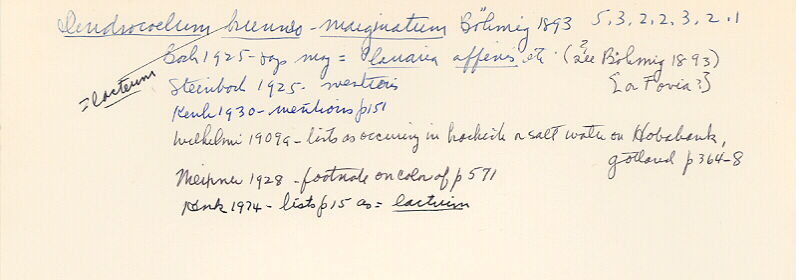 Dendrocoelum brunneo-marginatum Böhmig 1893 5.3.2.2.3.2.1
Bock 1925 - says may = Planaria affinis etc. (? see Böhmig 1893)
= lacteum
Steinbock 1925 - mentions [or Fovia?]
Kenk 1930 - mentions p151
Wilhelmi 1909a - lists as occuring in brackish or salt water on Hobsbank,
Gotland p 364-8
Meixner 1928 - footnote on color of p 571
Kenk 1974 - lists p15 as = lacteum